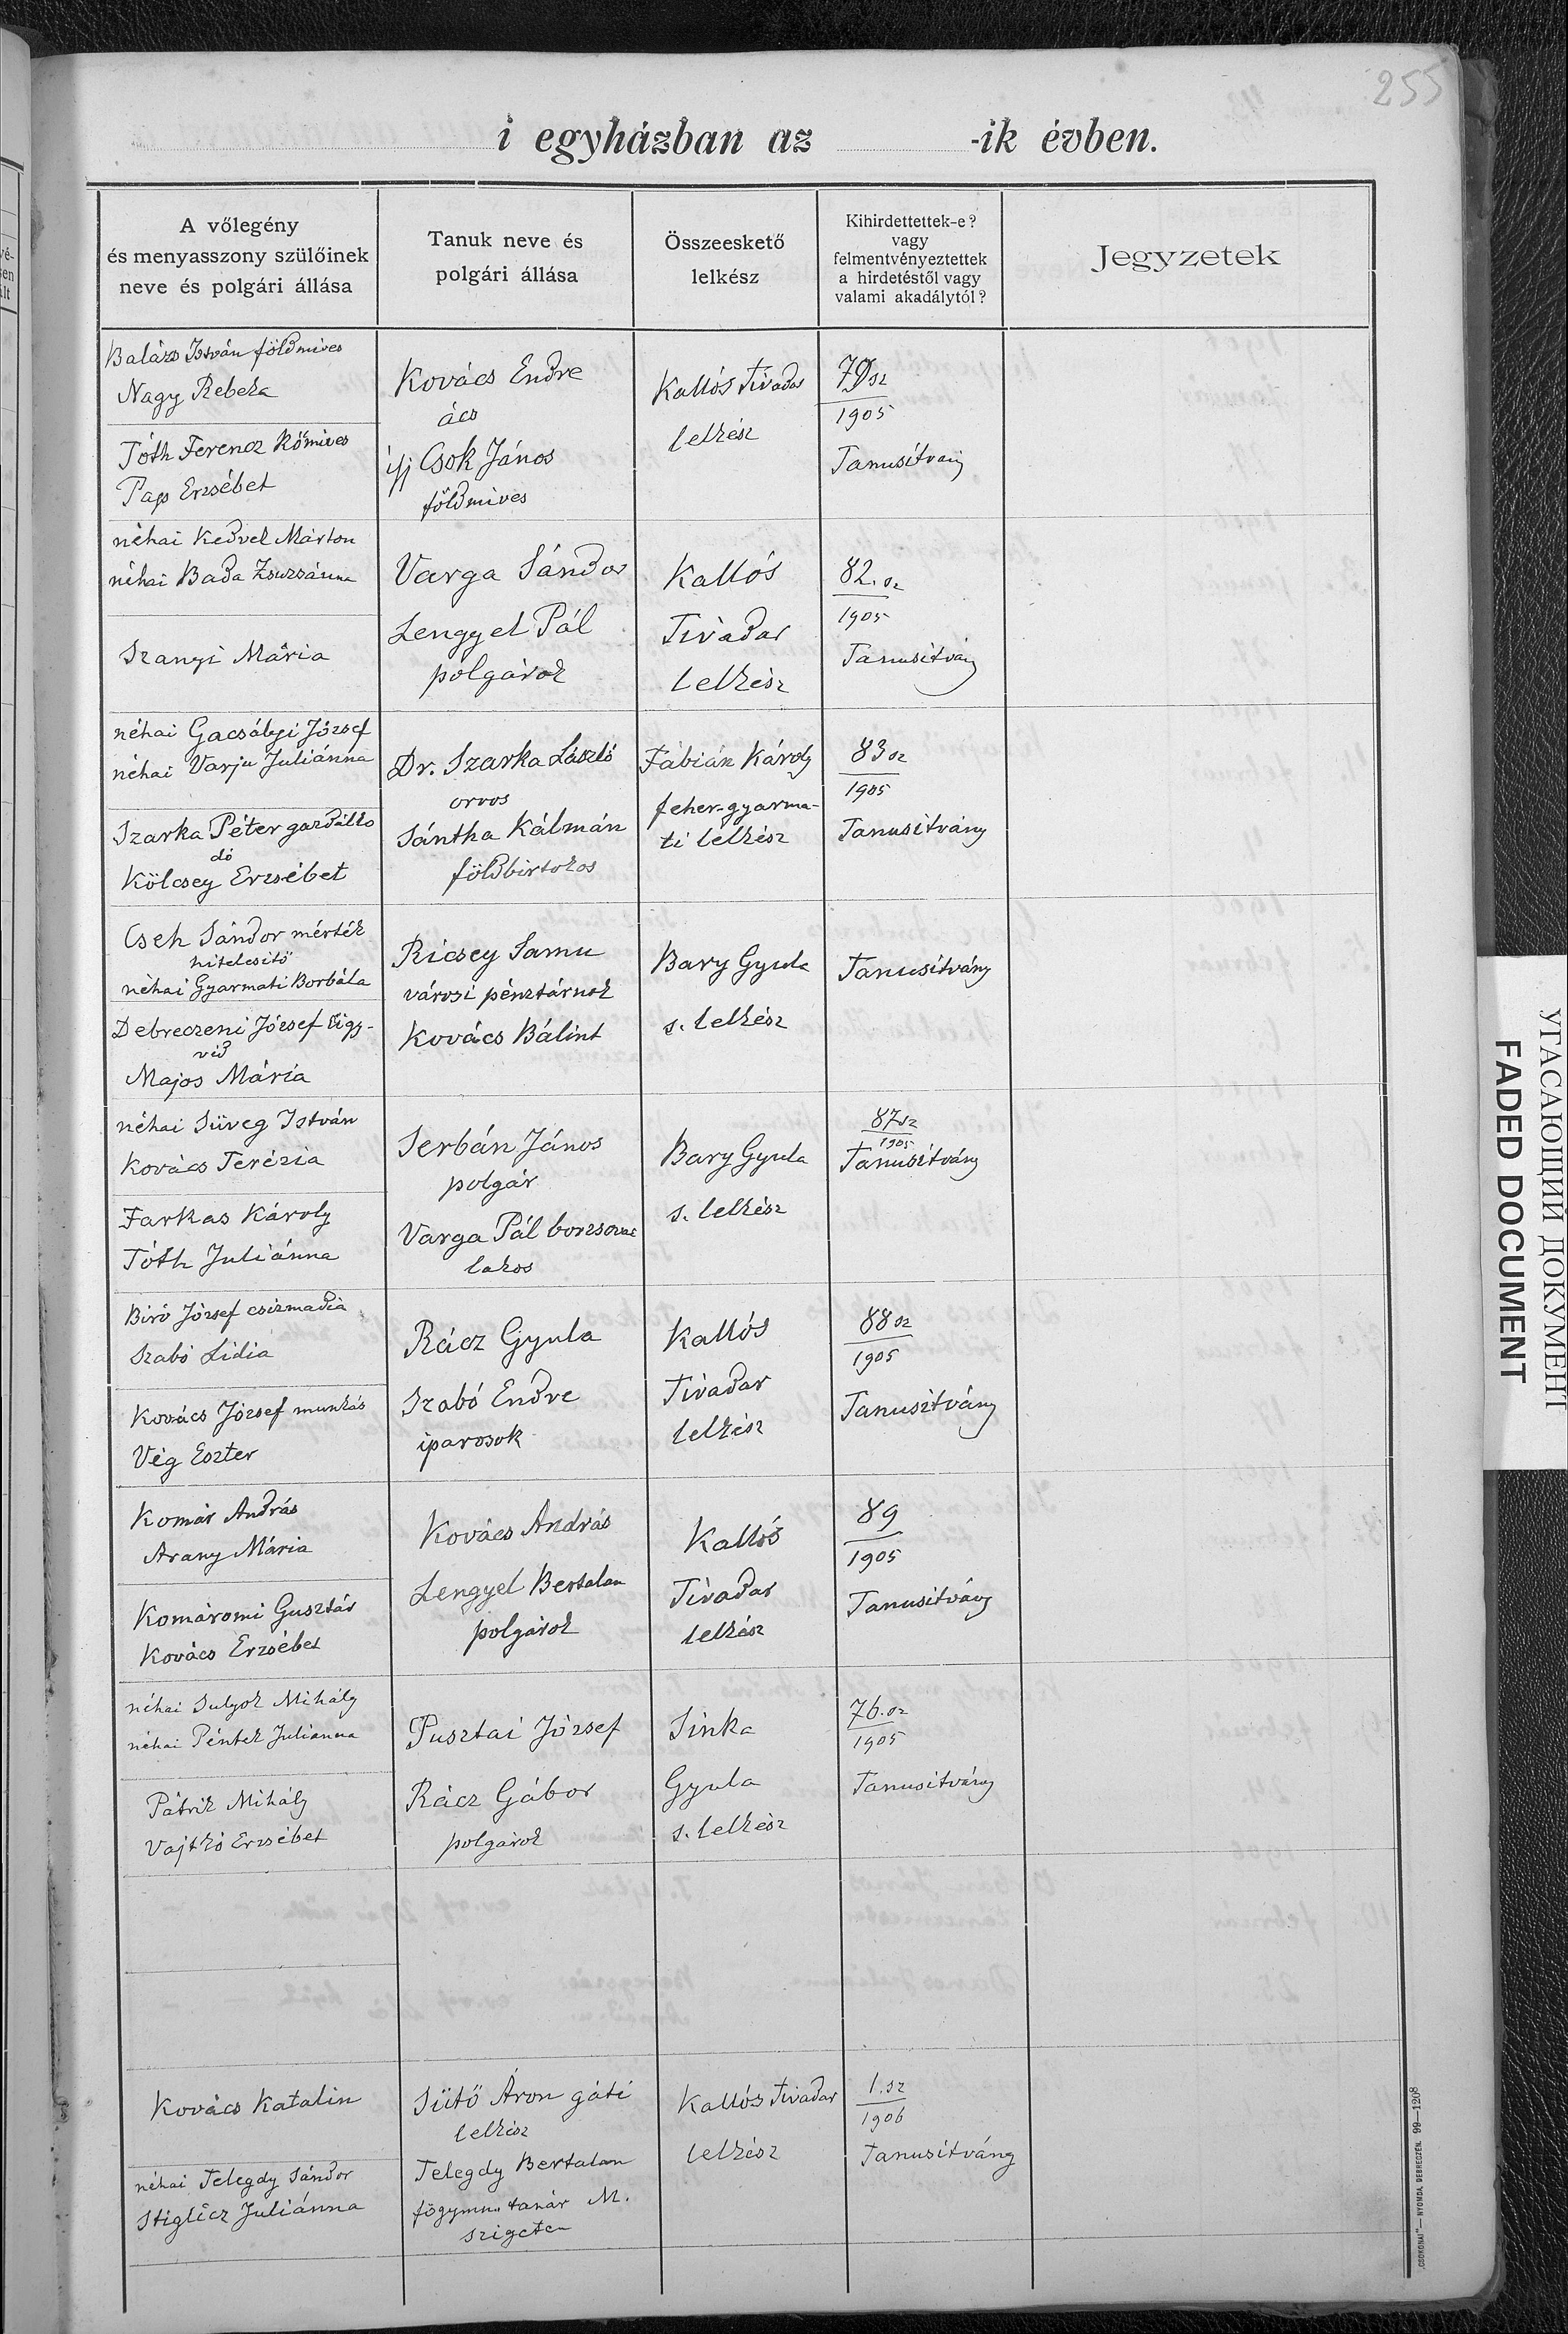 255
i egyházban az -ik évben.
A vőlegény
és menyasszony szülőinek
neve és polgári állása
Tanuk neve és
polgári állása
Összeeskető
lelkész
Kihirdettettek-e?
vagy
felmentvényeztettek
a hirdetéstől vagy
valami akadálytól?
Jegyzetek
Balázs István földmives
Nagy Rebeka
Tóth Ferencz kőmives
Pap Erzsébet
Kovács Endre
ács
ifj Csok János
földmives
Kallós Tivadar
lelkész
79 sz
1905
Tanusítvány
néhai Kedvek Márton
néhai Bada Zsuzsánna
Szanyi Mária
Varga Sándor
Lengyel Pál
polgárok
Kallós
Tivadar
lelkész
82. sz
1905
Tanusitvány
néhai Gacsályi József
néhai Varju Juliánna
Szarka Péter gazdálko
dó
Kölcsey Erzsébet
Dr. Szarka László
orvos
Sántha Kálmán
földbirtokos
Fábián Károly
feher-gyarma-
ti lelkész
83 sz
1905
Tanusitvány
Cseh Sándor mérték
hitelesitő
néhai Gyarmati Borbála
Debreczeni József ügy-
véd
Majos Mária
Ricsey Samu
városi pénztárnok
Kovács Bálint
Bary Gyula
s. lelkész
Tanusitvány
néhai Süveg István
Kovács Terézia
Farkas Károly
Tóth Juliánna
Serbán János
polgár
Varga Pál borzsovai
lakos
Bary Gyula
s. lelkész
87 sz
1905
Tanusitvány
Biró József csizmadia
Szabó Lidia
Kovács József munkás
Vég Eszter
Rácz Gyula
Szabó Endre
iparosok
Kallós
Tivadar
lelkész
88 sz
1905
Tanusitvány
Komár András
Arany Mária
Komáromi Gusztáv
Kovács Erzsébet
Kovács András
Lengyel Bertalan
polgárok
Kallós
Tivadar
lelkész
89
1905
Tanusitvány
néhai Sulyok Mihály
néhai Péntek Juliánna
Pátrik Mihály
Vajtkó Erzsébet
Pusztai József
Rácz Gábor
polgárok
Sinka
Gyula
s. lelkész
76. sz
1905
Tanusitvány
Kovács Katalin
néhai Telegdy Sándor
Stiglicz Juliánna
Sütő Áron gáti
lelkész
Telegdy Bertalan
főgymn. tanár M.
szigeten
Kallós Tivadar
lelkész
1. sz
1906
Tanusitvány
„CSOKONAI"—NYOMDA, DEBRECZEN. 99—1208
УГАСАЮЩИЙ ДОКУМЕНТ
FADED DOCUMENT